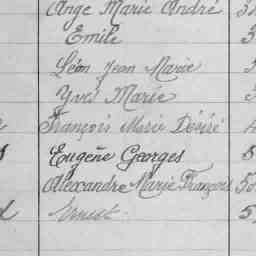 Ange Marie André
Emile
Léon Jean Marie
Yves Marie
François Marie Désiré
Eugène Georges
Alexandre Marie François
Ernest